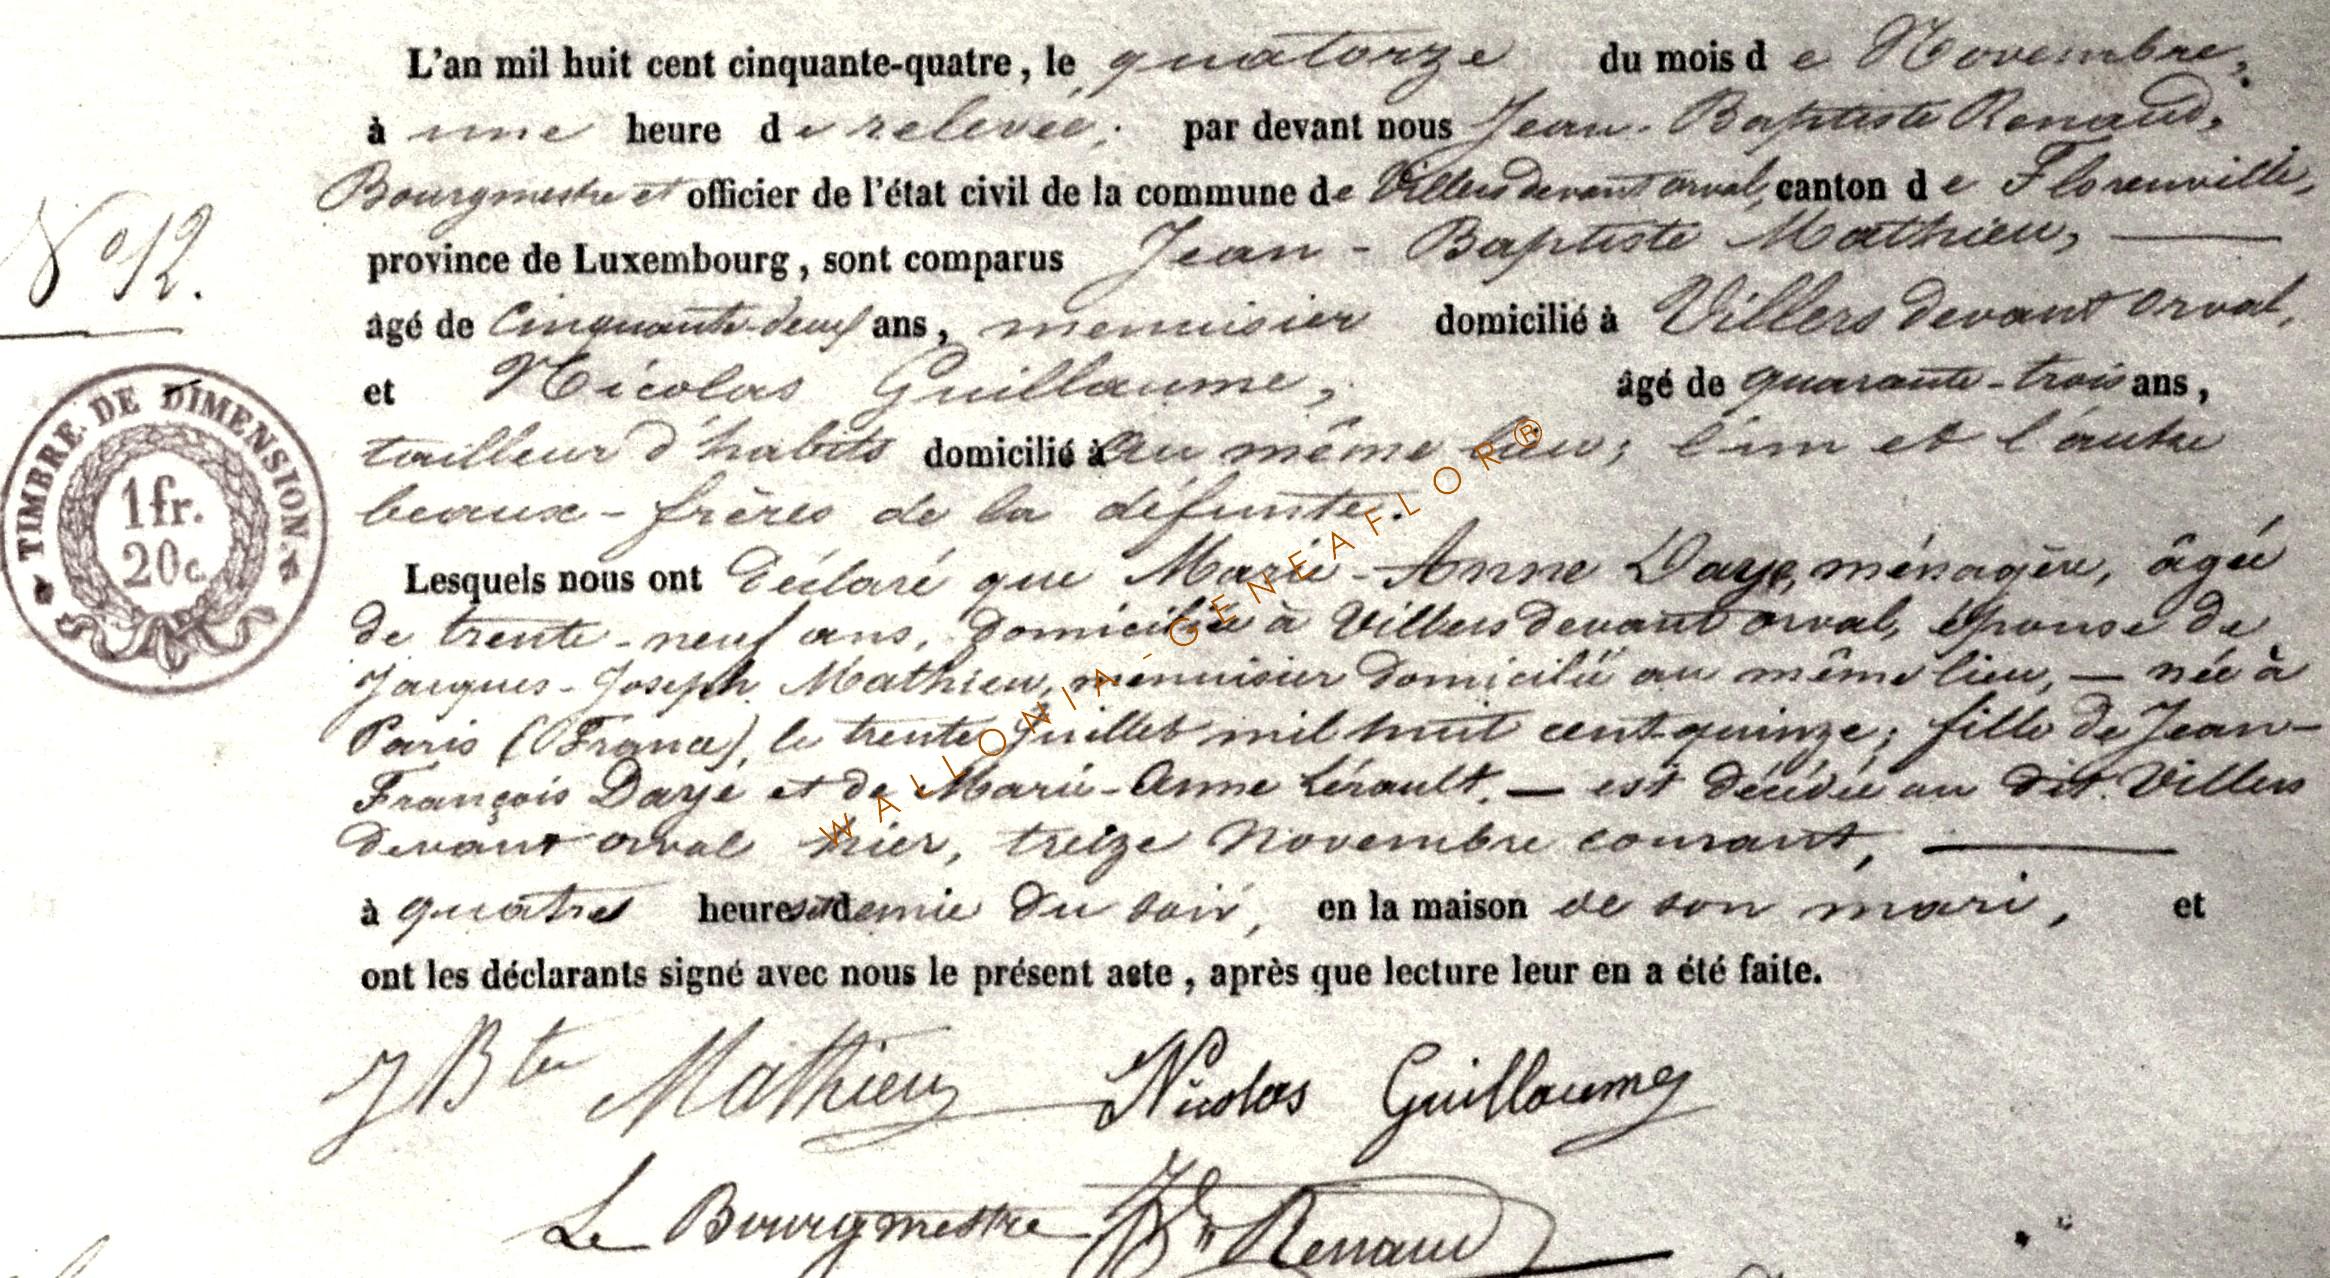 L'an mil huit cent cinquante-quatre, le quatorze du mois de Novembre,
à une heure de relevée, par devant nous Jean-Baptiste Renaud,
Bourgmestre et officier de l'état civil de la commune de Villers devant orval, canton de Florenville,
province de Luxembourg, sont comparus Jean-Baptiste Mathieu, —
N° 12.
âgé de Cinquante-deux ans, menuisier domicilié à Villers devant orval,
et Nicolas Guillaume, âgé de quarante-trois ans,
tailleur d'habits domicilié à au même lieu; l'un et l'autre
beaux-frères de la défunte.
TIMBRE DE DIMENSION.
1 fr.
20 c.
Lesquels nous ont déclaré que Marie-Anne Daye, ménagère, âgée
de trente-neuf ans, domiciliée à Villers devant orval, épouse de
Jacques-Joseph Mathieu, menuisier domicilié au même lieu, — née à
Paris (France), le trente Juillet mil huit cent quinze; fille de Jean-
François Dayé et de Marie-Anne Lérault, — est décédée au dit Villers
devant orval hier, treize Novembre courant, —
à quatre heures et demie du soir, en la maison de son mari, et
ont les déclarants signé avec nous le présent acte, après que lecture leur en a été faite.
J Bte Mathieu Nicolas Guillaume
Le Bourgmestre JBte Renaud
WALLONIA-GENEAFLOR®